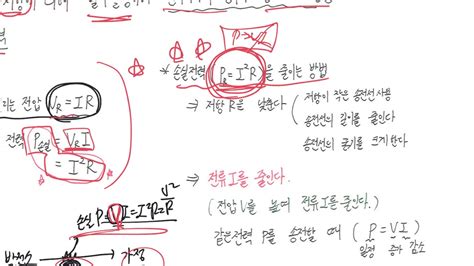 P→
* 손실전력 P손 = I²R 을 줄이는 방법
는 전압 V_R = IR
⇒ 저항 R을 낮춘다 ( 저항이 작은 송전선 사용
송전선의 길이를 줄인다
송전선의 굵기를 크게 한다
전력 P손실 = V_R I
= I²R
⇒ 전류 I를 줄인다.
( 전압 V를 높여 전류 I를 줄인다. )
같은 전력 P를 송전할 때 ( P = VI )
일정 증가 감소
손실 P = VI = I²R = V²/R
발전소
가정